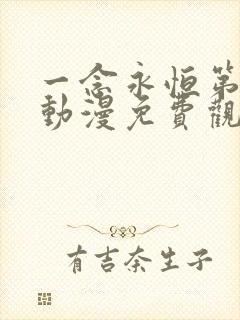 一念永恒第
動漫免費觀
有吉奈生子